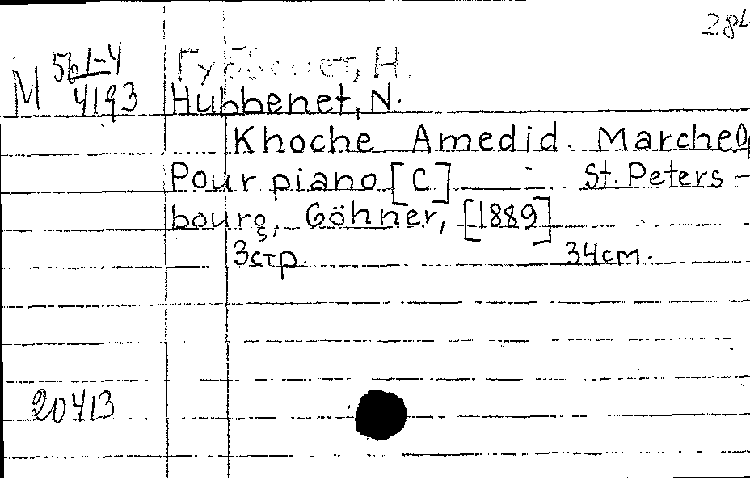 284
М 561-4 Губбенет, Н.
4193 Hubbenet, N.
Khoche Amedid. Marche
Pour piano [C] - St. Peters-
bourg, Göhner, [1889]
3 стр. 34 см.
20413